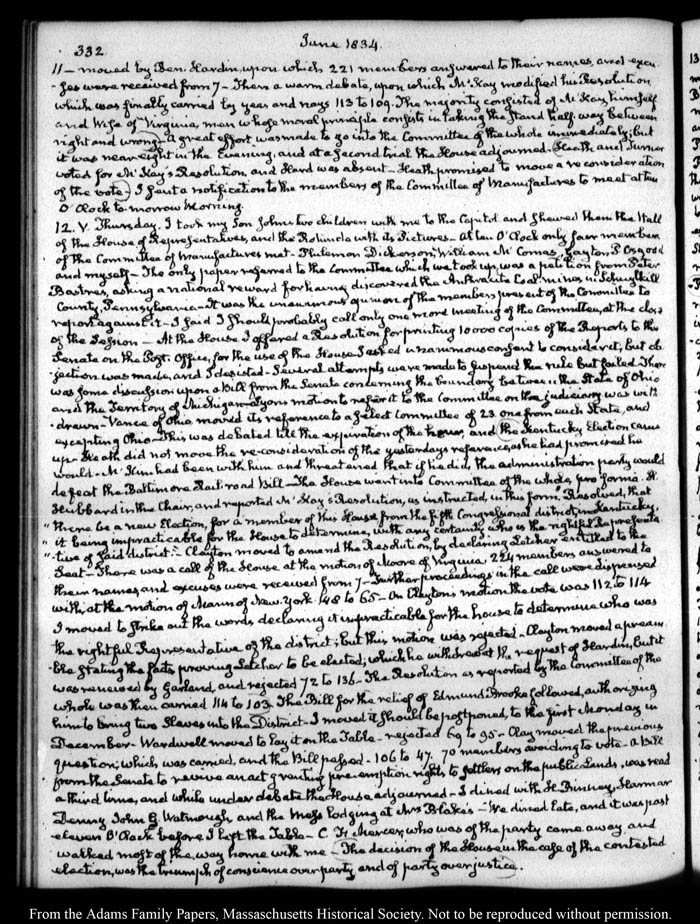 332
June 1834.
11 — moved by Ben. Hardin, upon which 221 members answered to their names, and excu
-ses were received from 7 — There a warm debate, upon which McKay modified his Resolution
which was finally carried by yeas and nays 113 to 109. The majority consisted of McKay himself
and Wise of Virginia, men whose moral principle consists in taking the stand half way between
right and wrong — A great effort was made to go into the Committee of the whole immediately; but
it was near eight in the Evening, and at a second trial the House adjourned — Heath and Turner
voted for McKay's Resolution, and Hard was absent — Heath promised to move a reconsideration
of the vote. I sent a notification to the members of the Committee of Manufactures to meet at ten
O'Clock to-morrow morning.
12. V. Thursday. I took my Son John's two children with me to the Capitol and shewed them the Hall
of the House of Representatives, and the Rotunda with its Pictures — At ten O'Clock only four members
of the Committee of Manufactures met — Philemon Dickerson, William McComas, Gayton P. Osgood
and myself — The only paper referred to the Committee which we took up, was a petition from Peter
Bastres, asking a national reward for having discovered the Anthracite Coal mines in Schuylkill
County, Pennsylvania — It was the unanimous opinion of the members present of the Committee to
report against it — I said I should probably call only one more meeting of the Committee, at the close
of the Session — At the House I offered a Resolution for printing 10000 copies of the Reports to the
Senate on the Post-Office, for the use of the House. I asked unanimous consent to consider it, but ob
-jection was made, and I desisted — Several attempts were made to suspend the rule but failed. There
was some discussion upon a Bill from the Senate concerning the boundary between the State of Ohio
and the Territory of Michigan — Lyons motion to refer it to the Committee on the judiciary was with
-drawn — Vance of Ohio moved its reference to a select Committee of 23. one from each State, and
excepting Ohio — This was debated till the expiration of the hour, and the Kentucky Election came
up — Heath did not move the re-consideration of the yesterdays reference, as he had promised he
would — McKim had been with him and threatened that if he did, the administration party would
defeat the Baltimore Rail-road Bill — The House went into Committee of the whole, pro forma. H.
Hubbard in the Chair, and reported McKay's Resolution, as instructed, in this form. Resolved, that
"there be a new Election, for a member of this House from the fifth Congressional district in Kentucky.
"it being impracticable for the House to determine, with any certainty, who is the rightful Representa
"-tive of said district" — Clayton moved to amend the Resolution, by declaring Letcher entitled to the
Seat — There was a call of the House at the motion of Moore of Virginia. 224 members answered to
their names, and excuses were received from 7 — Further proceedings in the call were dispensed
with, at the motion of Mann of New-York 148 to 65 — On Clayton's motion the vote was 112 to 114
I moved to strike out the words declaring it impracticable for the house to determine who was
the rightful Representative of the district; but this motion was rejected. Clayton moved a pream
-ble stating the facts, proving Letcher to be elected; which he withdrew at the request of Hardin, but it
was renewed by Garland, and rejected 72 to 136 — The Resolution as reported by the Committee of the
whole was then carried 114 to 103. The Bill for the relief of Edmund Brooke followed, authorizing
him to bring two Slaves into the District — I moved it should be postponed, to the first Monday in
December — Wardwell moved to lay it on the Table — rejected 69 to 95 — Clay moved the previous
question; which was carried, and the Bill passed — 106 to 47. 70 members avoiding to vote — A Bill
from the Senate to revive an act granting pre-emption rights to settlers on the public Lands, was read
a third time, and while under debate the House adjourned — I dined with H. Binney, Harmar
Denny, John G. Watmough, and the Mess lodging at Mrs Blake's — We dined late, and it was past
eleven O'Clock before I left the Table — C. F. Mercer, who was of the party came away, and
walked most of the way home with me — The decision of the House in the case of the contested
election, was the triumph of conscience over party and of party over justice.
From the Adams Family Papers, Massachusetts Historical Society. Not to be reproduced without permission.